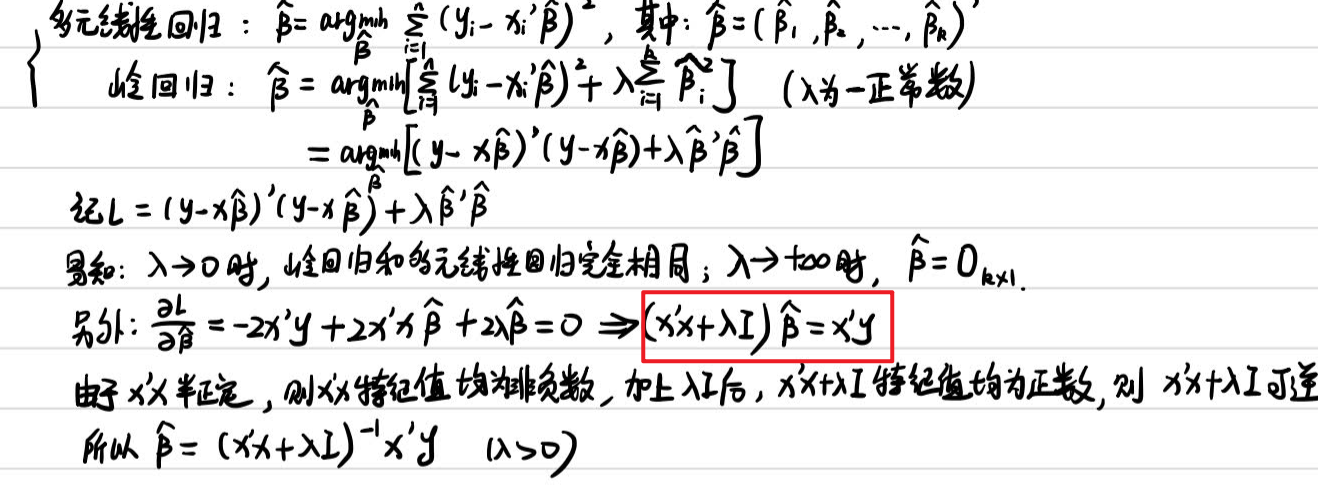 多元线性回归: β̂ = argmin_β̂ Σ_{i=1}^{n} (y_i - x_i'β̂)², 其中: β̂ = (β̂_1, β̂_2, ..., β̂_k)'
岭回归: β̂ = argmin_β̂ [Σ_{i=1}^{n} (y_i - x_i'β̂)² + λ Σ_{i=1}^{k} β̂_i²] (λ为一正常数)
= argmin_β̂ [(y - xβ̂)'(y - xβ̂) + λβ̂'β̂]
记 L = (y - xβ̂)'(y - xβ̂) + λβ̂'β̂
易知: λ→0时, 岭回归和多元线性回归完全相同; λ→+∞时, β̂ = 0_{k×1}.
另外: ∂L/∂β̂ = -2x'y + 2x'xβ̂ + 2λβ̂ = 0 ⇒ (x'x + λI)β̂ = x'y
由于x'x半正定, 则x'x特征值均为非负数, 加上λI后, x'x+λI特征值均为正数, 则 x'x+λI可逆
所以 β̂ = (x'x + λI)⁻¹x'y (λ>0)